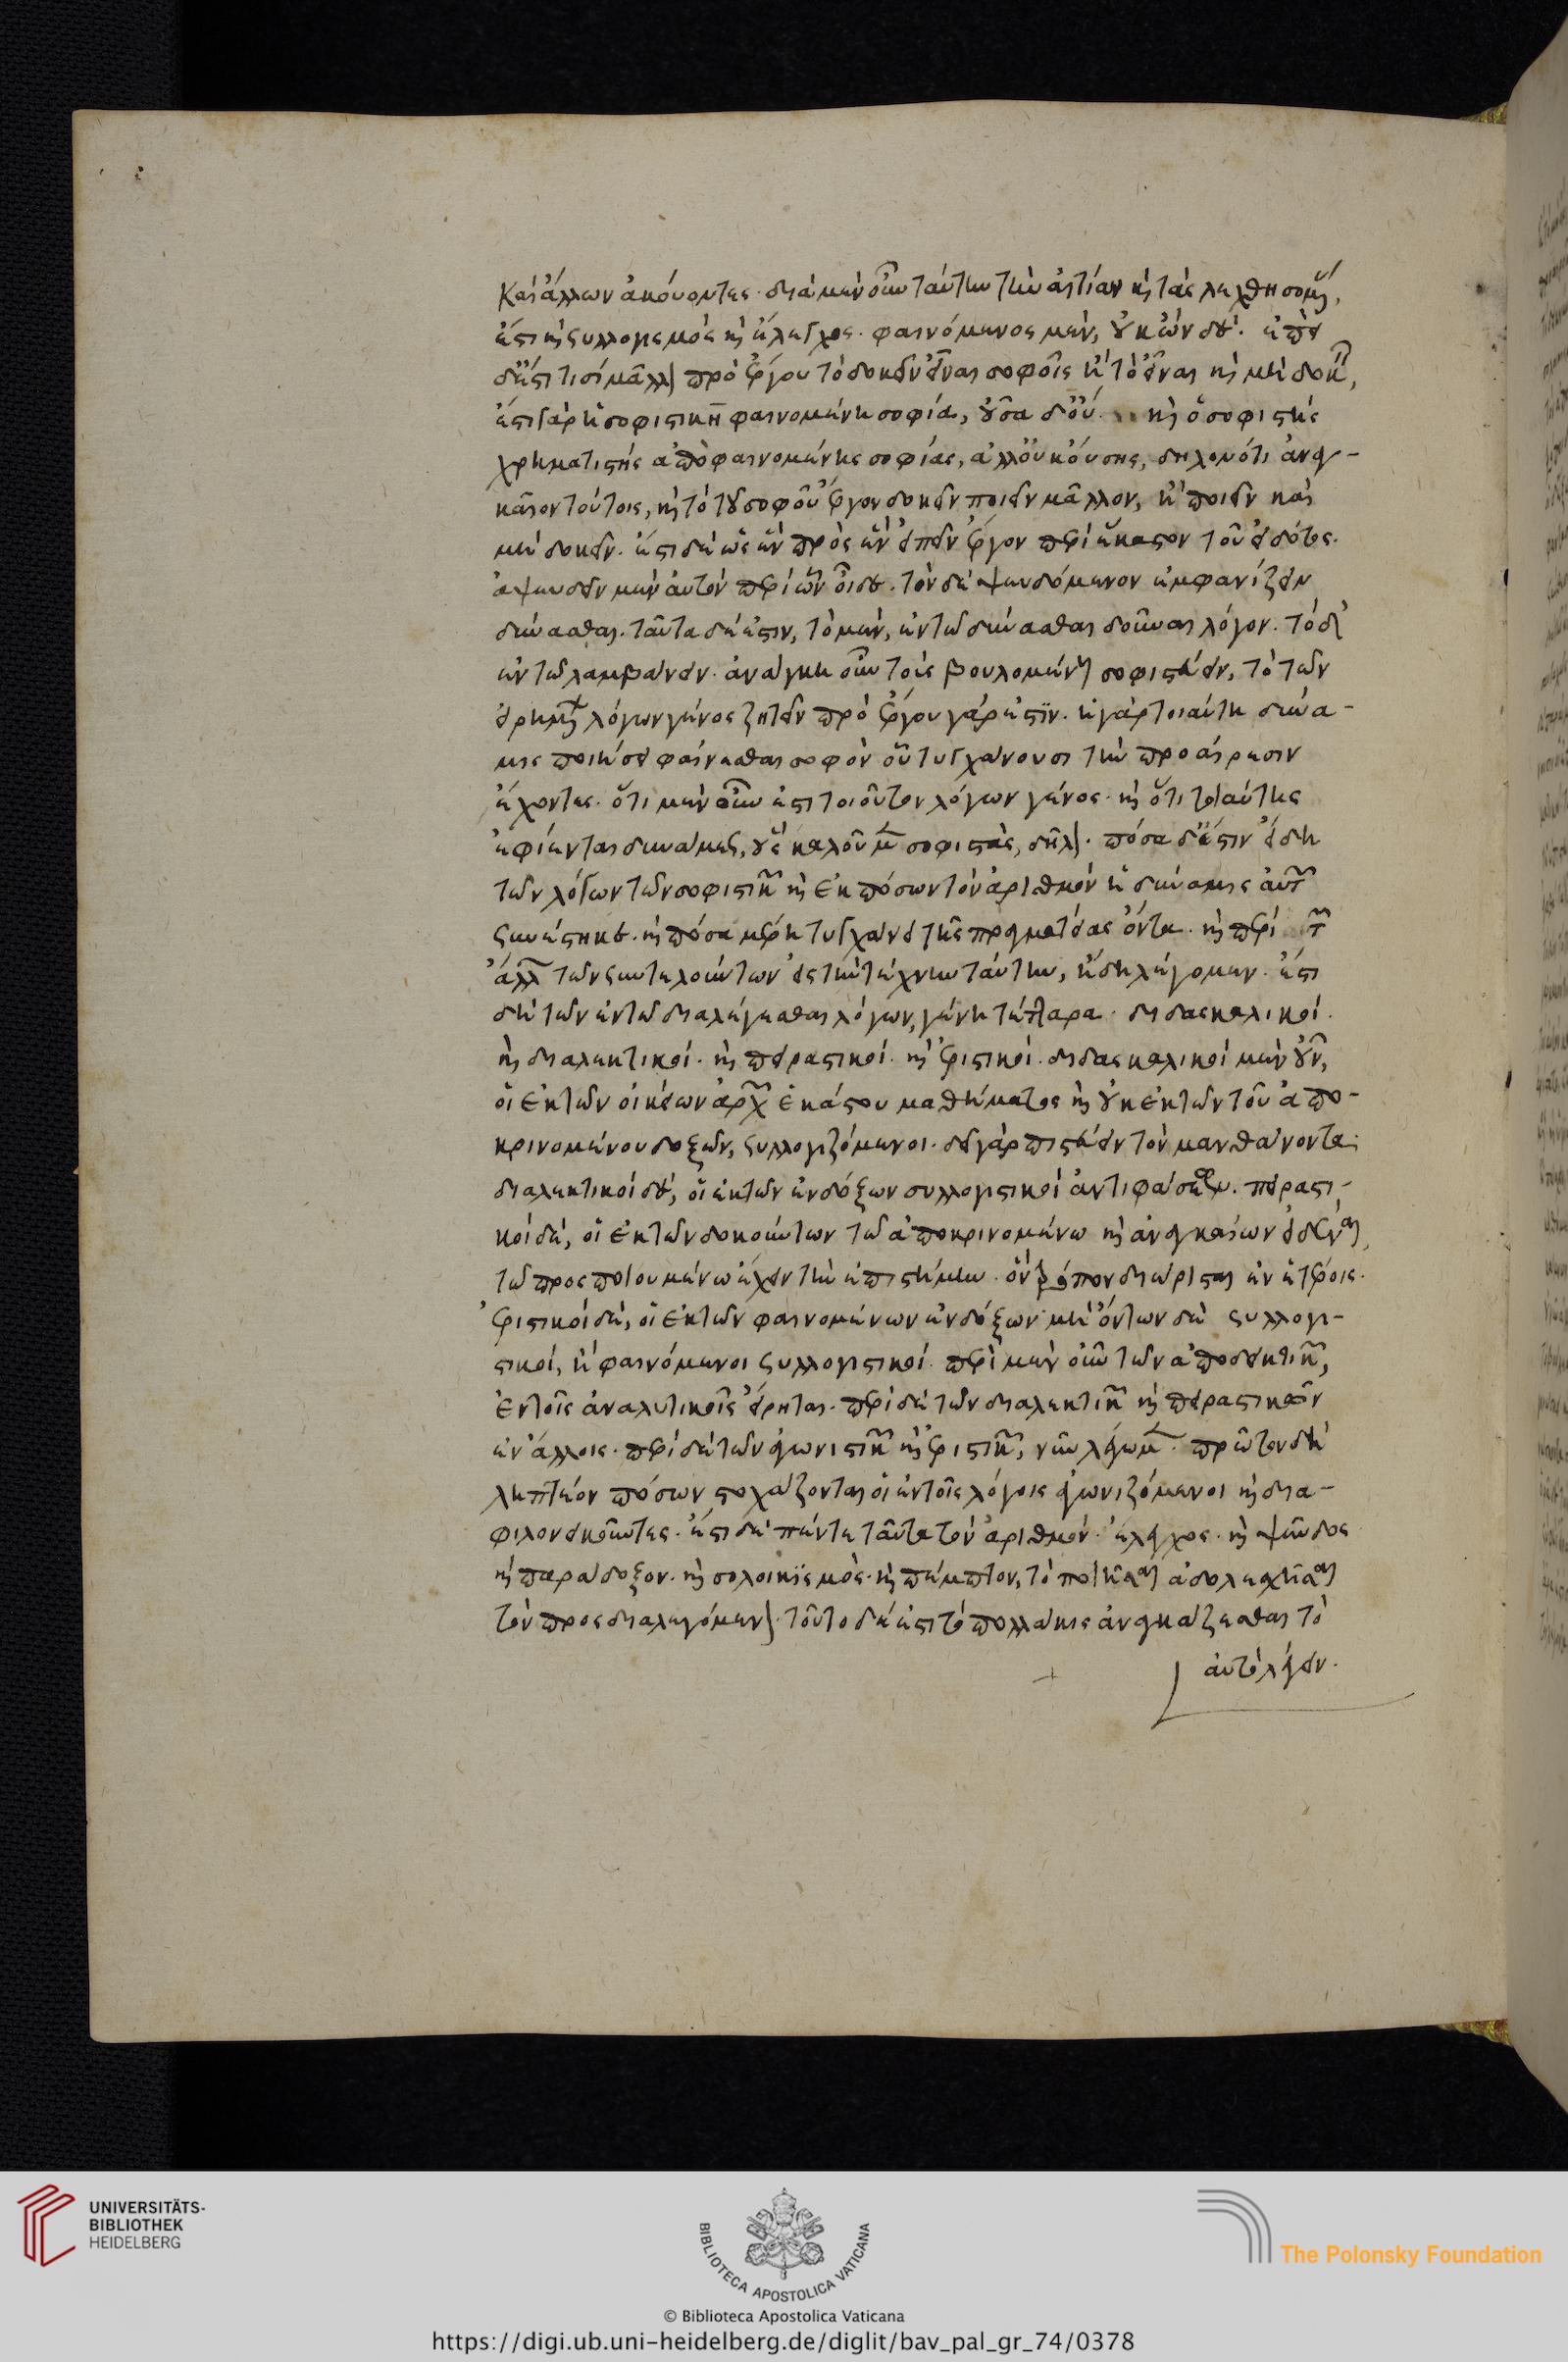 Καὶ ἄλλων ἀκούοντες· διὰ μὲν οὖν ταύτην τὴν αἰτίαν καὶ τὰς λεχθησομένας,
ἔστι καὶ συλλογισμὸς καὶ ἔλεγχος· φαινόμενος μὲν, οὐκ ὢν δέ· ἐπεὶ
δ' ἔστι τισὶ μᾶλλον πρὸ ἔργου τὸ δοκεῖν εἶναι σοφοῖς ἢ τὸ εἶναι καὶ μὴ δοκεῖν,
ἔστι γὰρ ἡ σοφιστικὴ φαινομένη σοφία, οὖσα δ' οὔ· καὶ ὁ σοφιστὴς
χρηματιστὴς ἀπὸ φαινομένης σοφίας, ἀλλ' οὐκ οὔσης, δῆλον ὅτι ἀναγ-
καῖον τούτοις, καὶ τὸ τοῦ σοφοῦ ἔργον δοκεῖν ποιεῖν μᾶλλον, ἢ ποιεῖν καὶ
μὴ δοκεῖν. ἔστι δὲ ὡς ἓν πρὸς ἓν εἰπεῖν ἔργον περὶ ἕκαστον τοῦ εἰδότος.
ἀψευδεῖν μὲν αὐτὸν περὶ ὧν οἶδε. τὸν δὲ ψευδόμενον ἐμφανίζειν
δύνασθαι. ταῦτα δέ ἐστιν, τὸ μὲν, ἐν τῷ δύνασθαι δοῦναι λόγον. τὸ δ'
ἐν τῷ λαμβάνειν. ἀνάγκη οὖν τοὺς βουλομένους σοφιστεύειν, τὸ τῶν
εἰρημένων λόγων γένος ζητεῖν πρὸ ἔργου γάρ ἐστιν. ἡ γὰρ τοιαύτη δύνα-
μις ποιήσει φαίνεσθαι σοφὸν οὗ τυγχάνουσι τὴν προαίρεσιν
ἔχοντες. ὅτι μὲν οὖν ἔστι τοιοῦτον λόγων γένος. καὶ ὅτι τοιαύτης
ἐφίενται δυνάμεως, οὓς καλοῦμεν σοφιστάς, δῆλον. πόσα δ' ἐστὶν εἴδη
τῶν λόγων τῶν σοφιστικῶν καὶ ἐκ πόσων τὸν ἀριθμὸν ἡ δύναμις αὕτη
συνέστηκε. καὶ πόσα μέρη τυγχάνει τῆς πραγματείας ὄντα. καὶ περὶ τῶν
ἄλλων τῶν συντελούντων εἰς τὴν τέχνην ταύτην, ἤδη λέγομεν. ἔστι
δὴ τῶν ἐν τῷ διαλέγεσθαι λόγων, γένη τέτταρα· διδασκαλικοί.
καὶ διαλεκτικοί. καὶ πειραστικοί. καὶ ἐριστικοί. διδασκαλικοὶ μὲν οὖν,
οἱ ἐκ τῶν οἰκείων ἀρχῶν ἑκάστου μαθήματος καὶ οὐκ ἐκ τῶν τοῦ ἀπο-
κρινομένου δοξῶν, συλλογιζόμενοι. δεῖ γὰρ πιστεύειν τὸν μανθάνοντα.
διαλεκτικοὶ δέ, οἱ ἐκ τῶν ἐνδόξων συλλογιστικοὶ ἀντιφάσεως. πειραστι-
κοὶ δέ, οἱ ἐκ τῶν δοκούντων τῷ ἀποκρινομένῳ καὶ ἀναγκαίων εἰδέναι,
τῷ προσποιουμένῳ ἔχειν τὴν ἐπιστήμην. ὃν τρόπον διώρισται ἐν ἑτέροις.
ἐριστικοὶ δέ, οἱ ἐκ τῶν φαινομένων ἐνδόξων μὴ ὄντων δὲ συλλογι-
στικοί, ἢ φαινόμενοι συλλογιστικοί. περὶ μὲν οὖν τῶν ἀποδεικτικῶν,
ἐν τοῖς ἀναλυτικοῖς εἴρηται. περὶ δὲ τῶν διαλεκτικῶν καὶ πειραστικῶν
ἐν ἄλλοις. περὶ δὲ τῶν ἀγωνιστικῶν καὶ ἐριστικῶν, νῦν λέγωμεν. πρῶτον δὴ
ληπτέον πόσων στοχάζονται οἱ ἐν τοῖς λόγοις ἀγωνιζόμενοι καὶ δια-
φιλονεικοῦντες. ἔστι δὲ πέντε ταῦτα τὸν ἀριθμόν. ἔλεγχος. καὶ ψεῦδος
καὶ παράδοξον. καὶ σολοικισμός. καὶ πέμπτον, τὸ ποιῆσαι ἀδολεσχῆσαι
τὸν προσδιαλεγόμενον. τοῦτο δέ ἐστι τὸ πολλάκις ἀναγκάζεσθαι τὸ
αὐτὸ λέγειν.
UNIVERSITÄTS-
BIBLIOTHEK
HEIDELBERG
BIBLIOTECA APOSTOLICA VATICANA
The Polonsky Foundation
© Biblioteca Apostolica Vaticana
https://digi.ub.uni-heidelberg.de/diglit/bav_pal_gr_74/0378